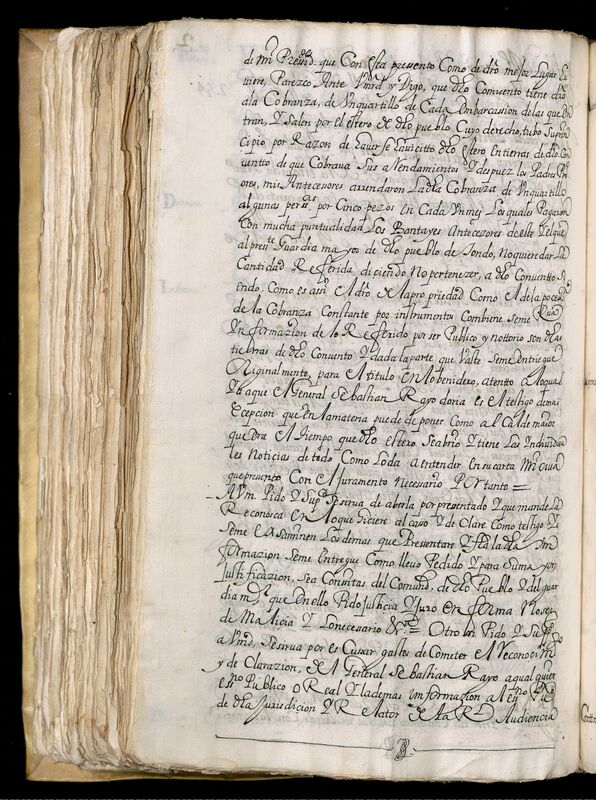 de mi Presid. que Con esta presento Como de dro mejor Lugar tu
viere, Parezco Ante Vmd y Digo, que dho Convento tiene dro
ala Cobranza, de Vnquartillo de Cada Embarcasion de las que En
tran, y salen por el estero de dho pueblo Cuyo derecho, tubo su prin
cipio por Razon de hauerse havierto dho estero En tierras de dho Con
vento de que Cobrava Sus aRendamientos y despuez los Padres Pri
ores, mis Antecesores arrendaron la dha Cobranza de Vnquartillo
algunas perss. por Cinco pezos en Cada Vn mes Los quales Pagaron
Con mucha puntualidad Los Bantayes Antecesores de este del que
al press.te Guardia mayor de dho pueblo de tondo, No quiere dar la
Cantidad Refferida diciendo No pertenezer, a dho Conventto Si
endo, Como es asi el dro de la propriedad Como el de la poce
de la Cobranza Constante por instrumentos Combiene se me Reciua
Ynformazion de lo Refferido por ser Publico y nottorio son dhas
tierras de dho Convento y dada la parte que Baste se me entriegue
Originalmente, para el titulo en lo benidero, atentto a lo qual
Y a que el General Sebasthian Rayo doria es el testigo demas
Ecepcion que en la materia puede de poner Como alCalde maior
que era el tiempo que dho estero se abrio y tiene las Individua
les Noticias de todo Como lo da a entender en su carta Mi
que presento Con el Juramento Necesario Por tanto =
A Vm. Pido y Supco. se sirua de aberla por presentada y que mande la
Reconosca en lo que hiciere al caso y de Clare Como testigo y
se me Exsaminen Los demas que Presentare y fha la dha In
formazion se me Entregue Como lleuo Pedido y para Su mayor
Justificazion, sea Con vitas del Comun, de dho Pueblo y del guar
dia mr. que en ello Pido Justicia y Juro En forma No ser
de Malicia y Lo necesario &ra = Otro si, Pido y Supco
a Vmd, se sirua por es Cusar gastos de Cometer el Reconosimto
y de Clarazion, del General Sebasthian Rayo a qualquier
essno Publico o Real y la demas informazion al essno Pu.co
de dha Jurisdicion y Relator de la Rl Audiencia